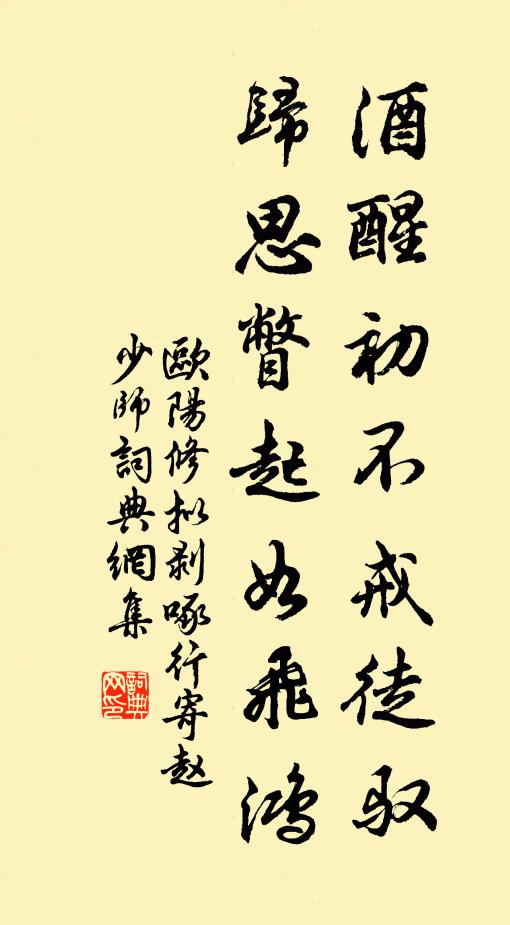 酒醒初不戒徒驭
歸思瞥起如飛鴻
歐陽修拟剥啄行寄赵
少師詞典網集
詞典網印